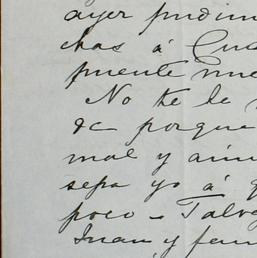 ayer pudim
chas á Cu
puente nue
No he le
&c porque
mal y ain
sepa yo á q
poco - Talve
Juan y fam